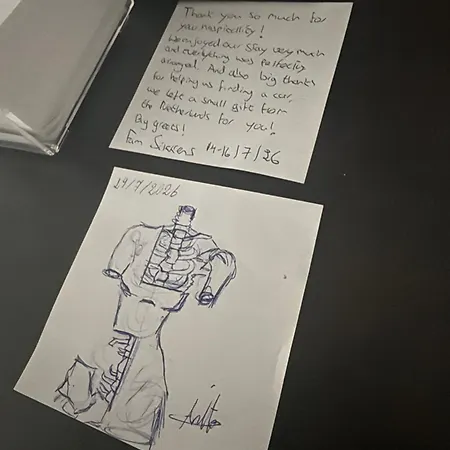 Thank you so much for
your hospitality!
We enjoyed our stay very much
and everything was perfectly
arranged. And also big thanks
for helping us finding a car,
we left a small gift from
the Netherlands for you!
Big greets!
Fam 14-16/7/26
29/7/2026